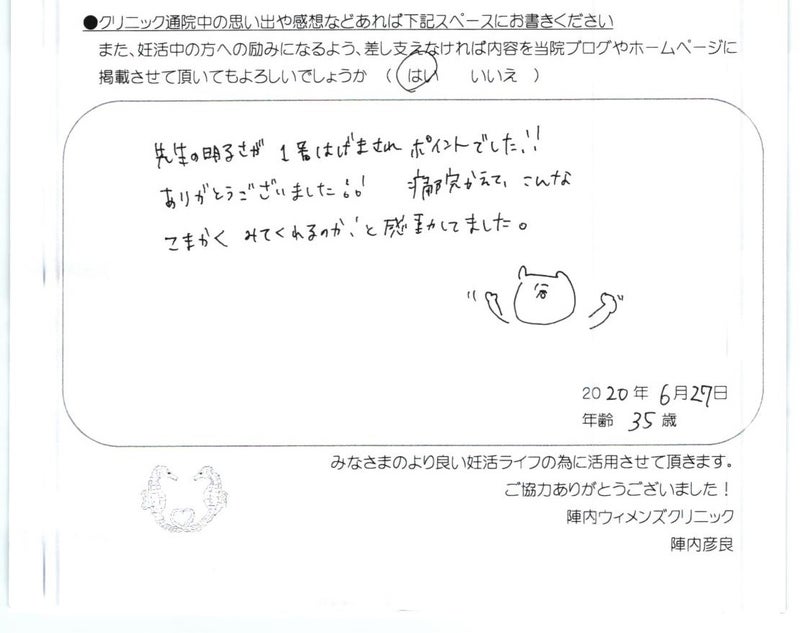 ●クリニック通院中の思い出や感想などあれば下記スペースにお書きください
また、妊活中の方への励みになるよう、差し支えなければ内容を当院ブログやホームページに
掲載させて頂いてもよろしいでしょうか （ はい　いいえ ）
先生の明るさが 1番はげまされ ポイントでした!!
ありがとうございました!! 病院かえて、こんな
こまかく みてくれるのか、と感動してました。
2020年 6月27日
年齢 35歳
みなさまのより良い妊活ライフの為に活用させて頂きます。
ご協力ありがとうございました！
陣内ウィメンズクリニック
陣内彦良